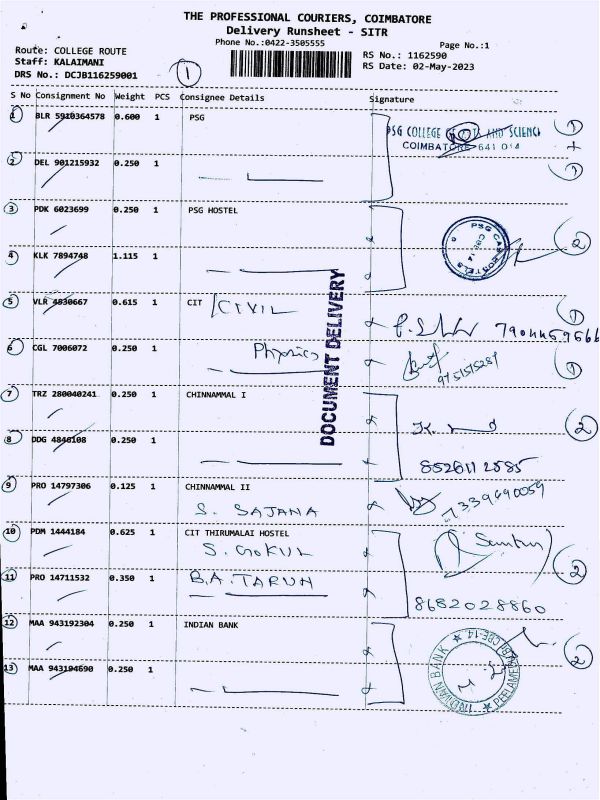 THE PROFESSIONAL COURIERS, COIMBATORE
Delivery Runsheet - SITR
Phone No.:0422-3505555
Page No.:1
Route: COLLEGE ROUTE
Staff: KALAIMANI
DRS No.: DCJB116259001
1
RS No.: 1162590
RS Date: 02-May-2023
S No Consignment No Weight PCS Consignee Details Signature
1 BLR 5920364578 0.600 1 PSG
PSG COLLEGE OF ARTS AND SCIENCE
COIMBATORE 641 014
1
+
2 DEL 901215932 0.250 1
1
3 PDK 6023699 0.250 1 PSG HOSTEL
PSG CAS HOSTELS
CBE-14
2
4 KLK 7894748 1.115 1
5 VLR 4830667 0.615 1 CIT CIVIL
1
6 CGL 7006072 0.250 1 Physics
9751515289
1
DOCUMENT DELIVERY
7 TRZ 280040241 0.250 1 CHINNAMMAL I
2
8 DDG 4846108 0.250 1
8526112585
9 PRO 14797306 0.125 1 CHINNAMMAL II
S. SAJANA
7339690059
10 PDM 1444184 0.625 1 CIT THIRUMALAI HOSTEL
S. GOKUL
2
11 PRO 14711532 0.350 1 B.A. TARUN
8682028860
12 MAA 943192304 0.250 1 INDIAN BANK
INDIAN BANK
CBE-14
2
13 MAA 943194690 0.250 1